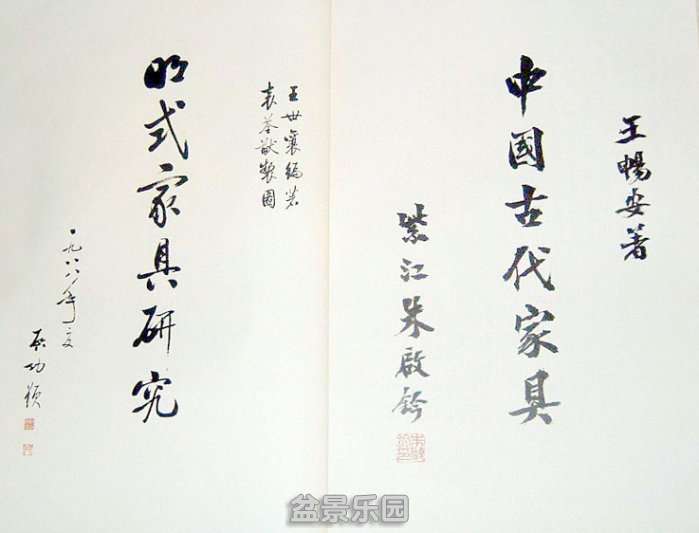 王暢安著
中國古代家具
紫江朱啟鈐
王世襄編著
袁荃猷製圖
明式家具研究
一九八八年夏
啟功題
盆景乐园